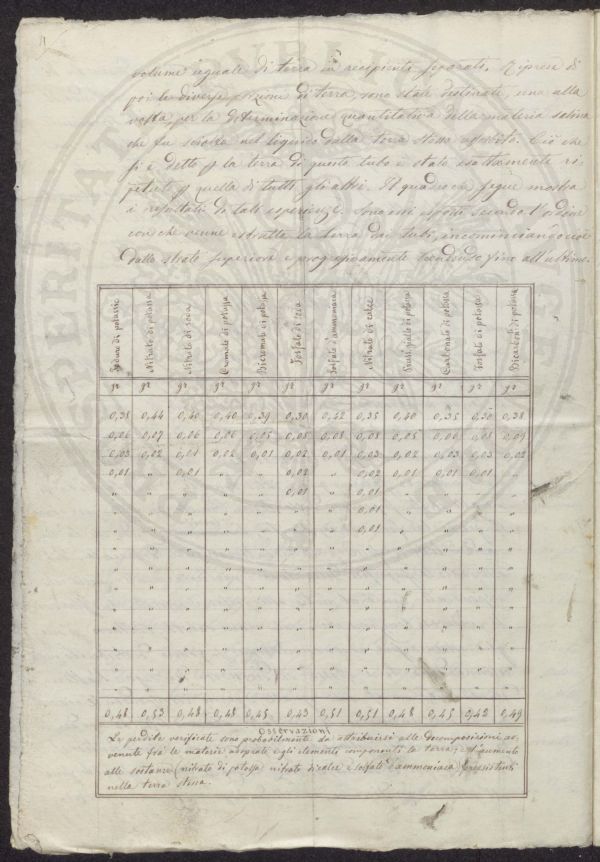 volume uguale di terra in recipiente separato. Riprese di
poi le diverse porzioni di terra, sono state destinate, una alla
volta, per la determinazione quantitativa della materia salina
che fu sciolta nel liquido dalla terra stessa assorbito. Ciò che
si è detto p la terra di questo tubo è stato esattamente ri
petuto p quella di tutti gli altri. Il quadro che segue mostra
i resultati di tali esperienze. Sono ivi esposti secondo l'ordine
con che venne estratta la terra dai tubi, incominciando cioè
dallo strato superiore e progressivamente scendendo fino all'ultimo.
Joduro di potassio Nitrato di potassa Nitrato di soda Cromato di potassa Bicromato di potassa Fosfato di soda Solfato d'ammoniaca Nitrato di calce giallo di potassa Carbonato di potassa Solfato di potassa Bicarbon. di potassa
gr gr gr gr gr gr gr gr gr gr gr gr
0,38 0,44 0,40 0,40 0,39 0,30 0,42 0,35 0,40 0,35 0,30 0,38
0,06 0,07 0,06 0,06 0,05 0,08 0,08 0,08 0,05 0,06 0,08 0,09
0,03 0,02 0,01 0,02 0,01 0,02 0,01 0,03 0,02 0,03 0,03 0,02
0,01 " 0,01 " " 0,02 " 0,02 0,01 0,01 0,01 "
" " " " " 0,01 " 0,01 " " " "
" " " " " " " 0,01 " " " "
" " " " " " " 0,01 " " " "
" " " " " " " " " " " "
" " " " " " " " " " " "
" " " " " " " " " " " "
" " " " " " " " " " " "
" " " " " " " " " " " "
" " " " " " " " " " " "
" " " " " " " " " " " "
0,48 0,53 0,48 0,48 0,45 0,43 0,51 0,51 0,48 0,45 0,42 0,49
Osservazioni
Le perdite verificate sono probabilmente da attribuirsi alle decomposizioni av-
venute fra le materie adoprate e gli elementi componenti la terra; e l'aumento
alle sostanze (nitrato di potassa nitrato di calce e solfato d'ammoniaca) preesistenti
nella terra stessa.